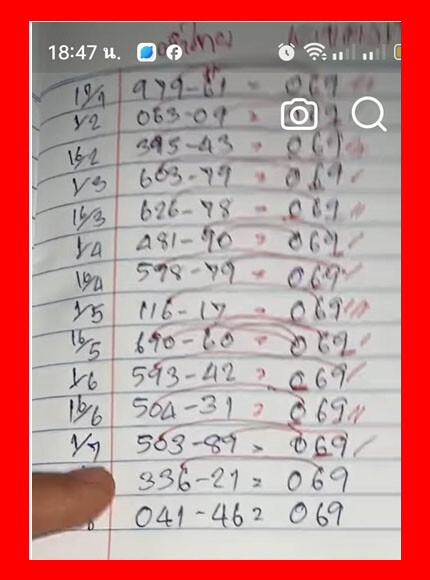 18:47 น.
979-61 = 069
1/2 063-09 = 069
16/2 395-43 = 069
1/3 603-79 = 069
16/3 626-78 = 069
1/4 481-90 = 069
16/4 598-79 = 069
1/5 116-17 = 069
16/5 690-60 = 069
1/6 593-42 = 069
16/6 504-31 = 069
1/7 503-89 = 069
336-21 = 069
041-46 = 069